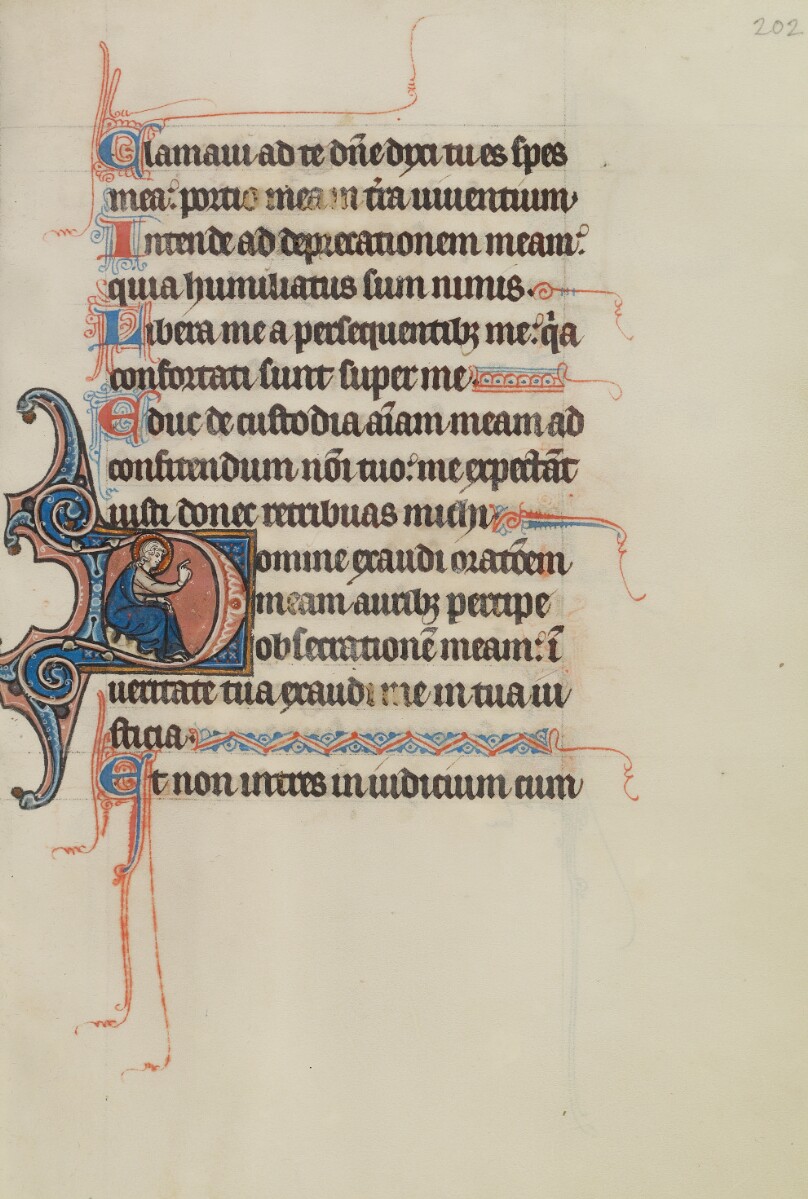 202
Clamaui ad te dn̄e dyxi tu es spes
mea: portio mea in t̄ra uiuentium
Intende ad deprecationem meam:
quia humiliatus sum nimis.
Libera me a persequentibꝫ me: q̇a
confortati sunt super me.
Educ de custodia aīam meam ad
confitendum nōi tuo: me expectāt
iusti donec retribuas michi.
Domine exaudi oratōem
meam auribꝫ percipe
obsecrationē meam: ī
ueritate tua exaudi me in tua iu
sticia.
Et non intres in iudicium cum